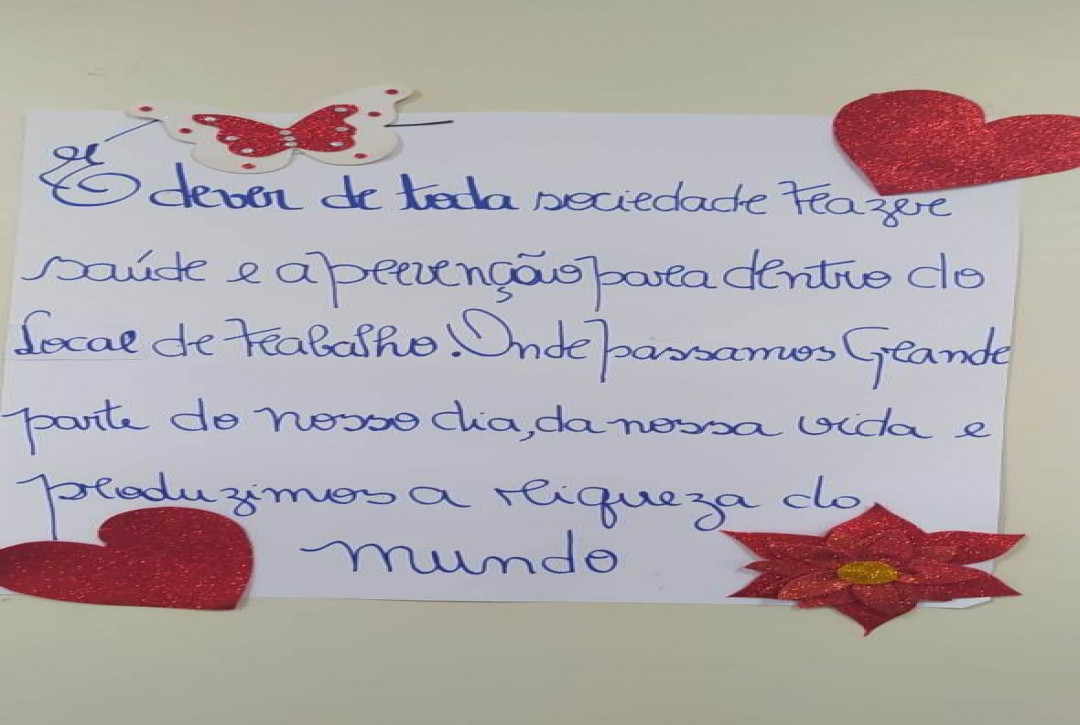 É dever de toda sociedade trazer
saúde e a prevenção para dentro do
Local de trabalho. Onde passamos Grande
parte do nosso dia, da nossa vida e
produzimos a riqueza do
mundo